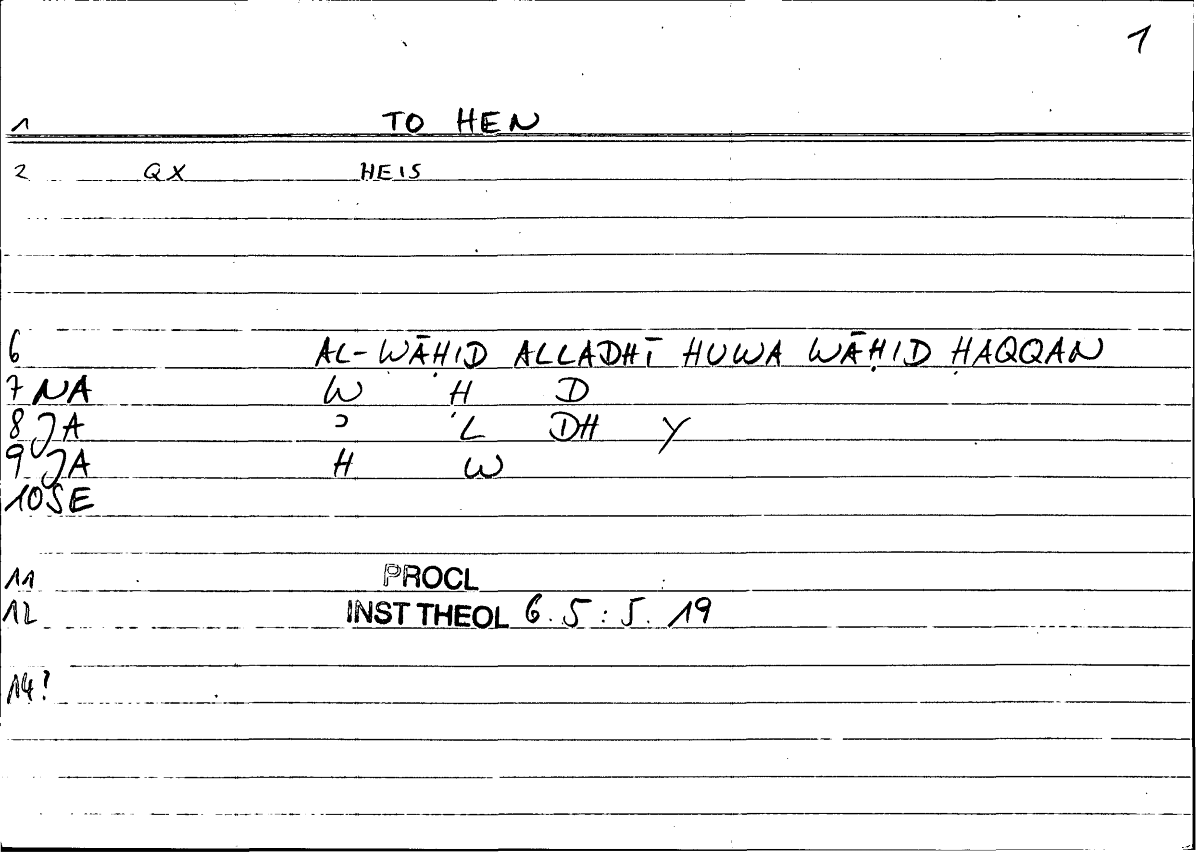 1
1 TO HEN
2 QX HEIS
6 AL-WĀḤID ALLADHĪ HUWA WĀḤID ḤAQQAN
7 NA W Ḥ D
8 JA ʾ L DH Y
9 JA H W
10 SE
11 PROCL
12 INST THEOL 6.5:5.19
14?